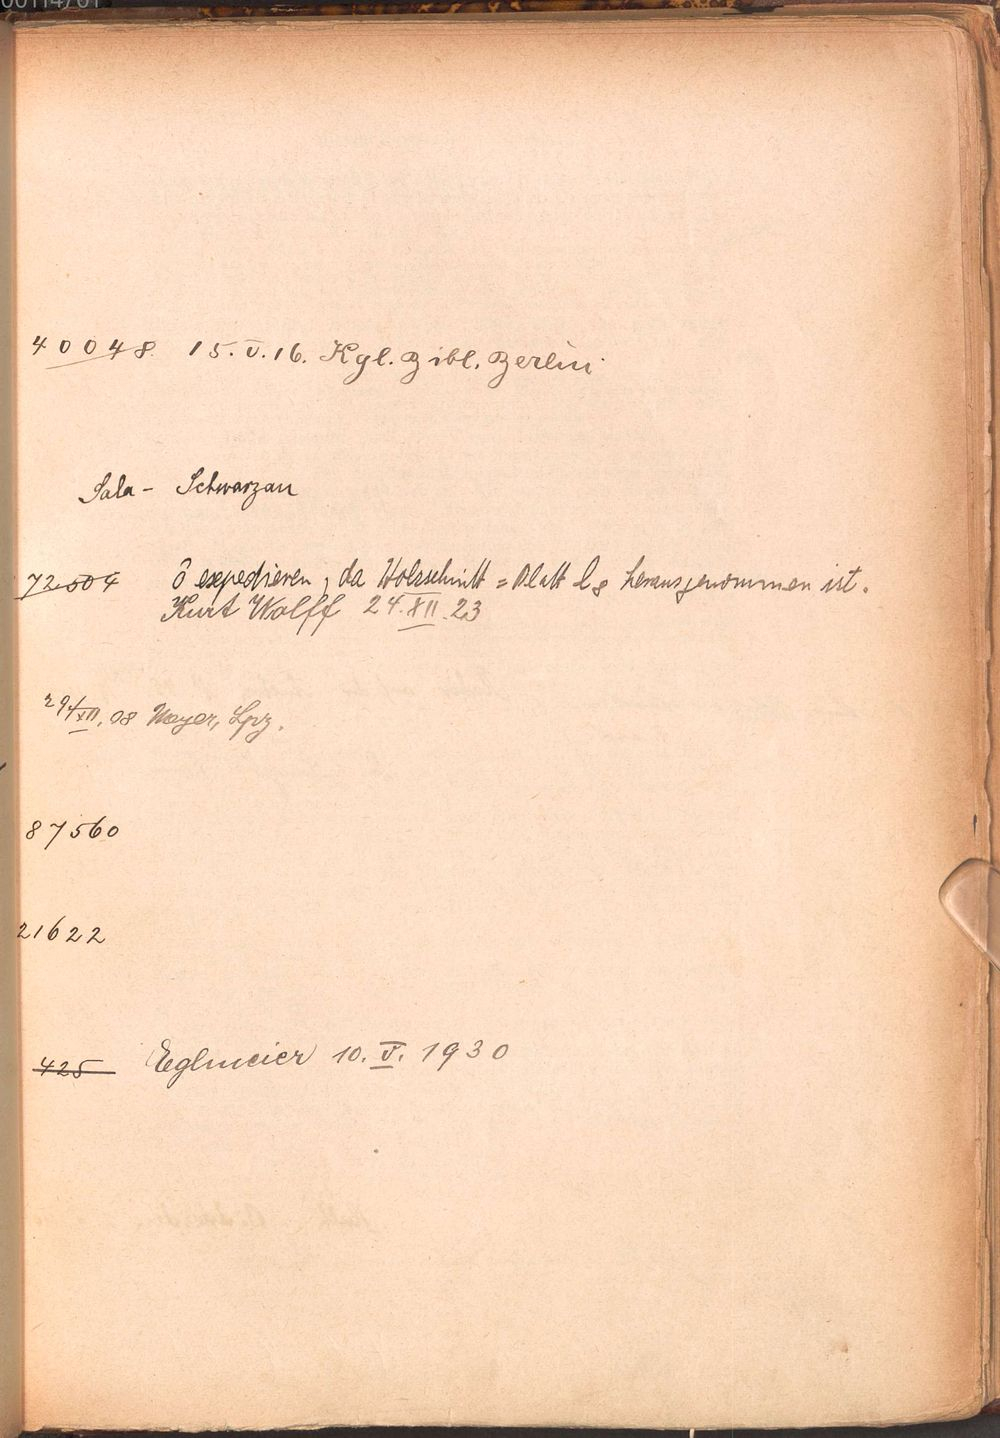 40048 15.V.16. Kgl. Bibl. Berlin
Sala - Schwarzau
72504 ô expedieren, da Holzschnitt = Blatt l8 herausgenommen ist.
Kurt Wolff 24.XII.23
29/XII.08 Meyer, Lpzg.
87560
21622
425 Eglmeier 10. V. 1930